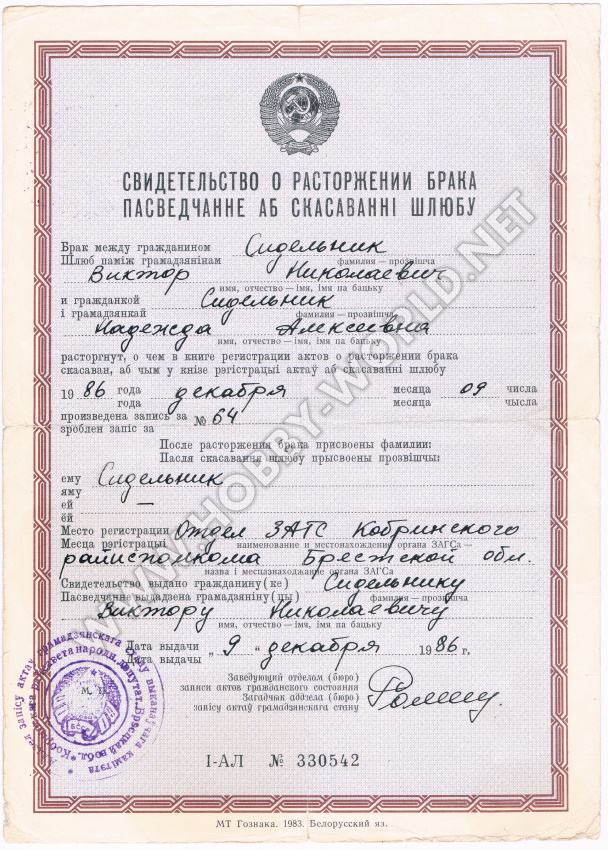 СВИДЕТЕЛЬСТВО О РАСТОРЖЕНИИ БРАКА
ПАСВЕДЧАННЕ АБ СКАСАВАННІ ШЛЮБУ
Брак между гражданином Сидельник
Шлюб паміж грамадзянінам фамилия – прозвішча
Виктор Николаевич
имя, отчество – імя, імя па бацьку
и гражданкой Сидельник
і грамадзянкай фамилия – прозвішча
Надежда Алексеевна
имя, отчество – імя, імя па бацьку
расторгнут, о чем в книге регистрации актов о расторжении брака
скасаван, аб чым у кнізе рэгістрацыі актаў аб скасаванні шлюбу
19 86 года декабря месяца 09 числа
года месяца чысла
произведена запись за № 64
зроблен запіс за
После расторжения брака присвоены фамилии:
Пасля скасавання шлюбу прысвоены прозвішчы:
ему Сидельник
яму
ей —
ёй
Место регистрации Отдел ЗАГС Кобринского
Месца рэгістрацыі наименование и местонахождение органа ЗАГСа –
райисполкома Брестской обл.
назва і месцазнаходжанне органа ЗАГСа
Свидетельство выдано гражданину(ке) Сидельнику
Пасведчанне выдадзена грамадзяніну(цы) фамилия – прозвішча
Виктору Николаевичу
имя, отчество – імя, імя па бацьку
Дата выдачи „ 9 “ декабря 1986 г.
Дата выдачы
Заведующий отделом (бюро)
записи актов гражданского состояния
Загадчык аддзела (бюро)
запісу актаў грамадзянскага стану
М. П.
I-АЛ № 330542
МТ Гознака. 1983. Белорусский яз.
WWW.HOBBY-WORLD.NET